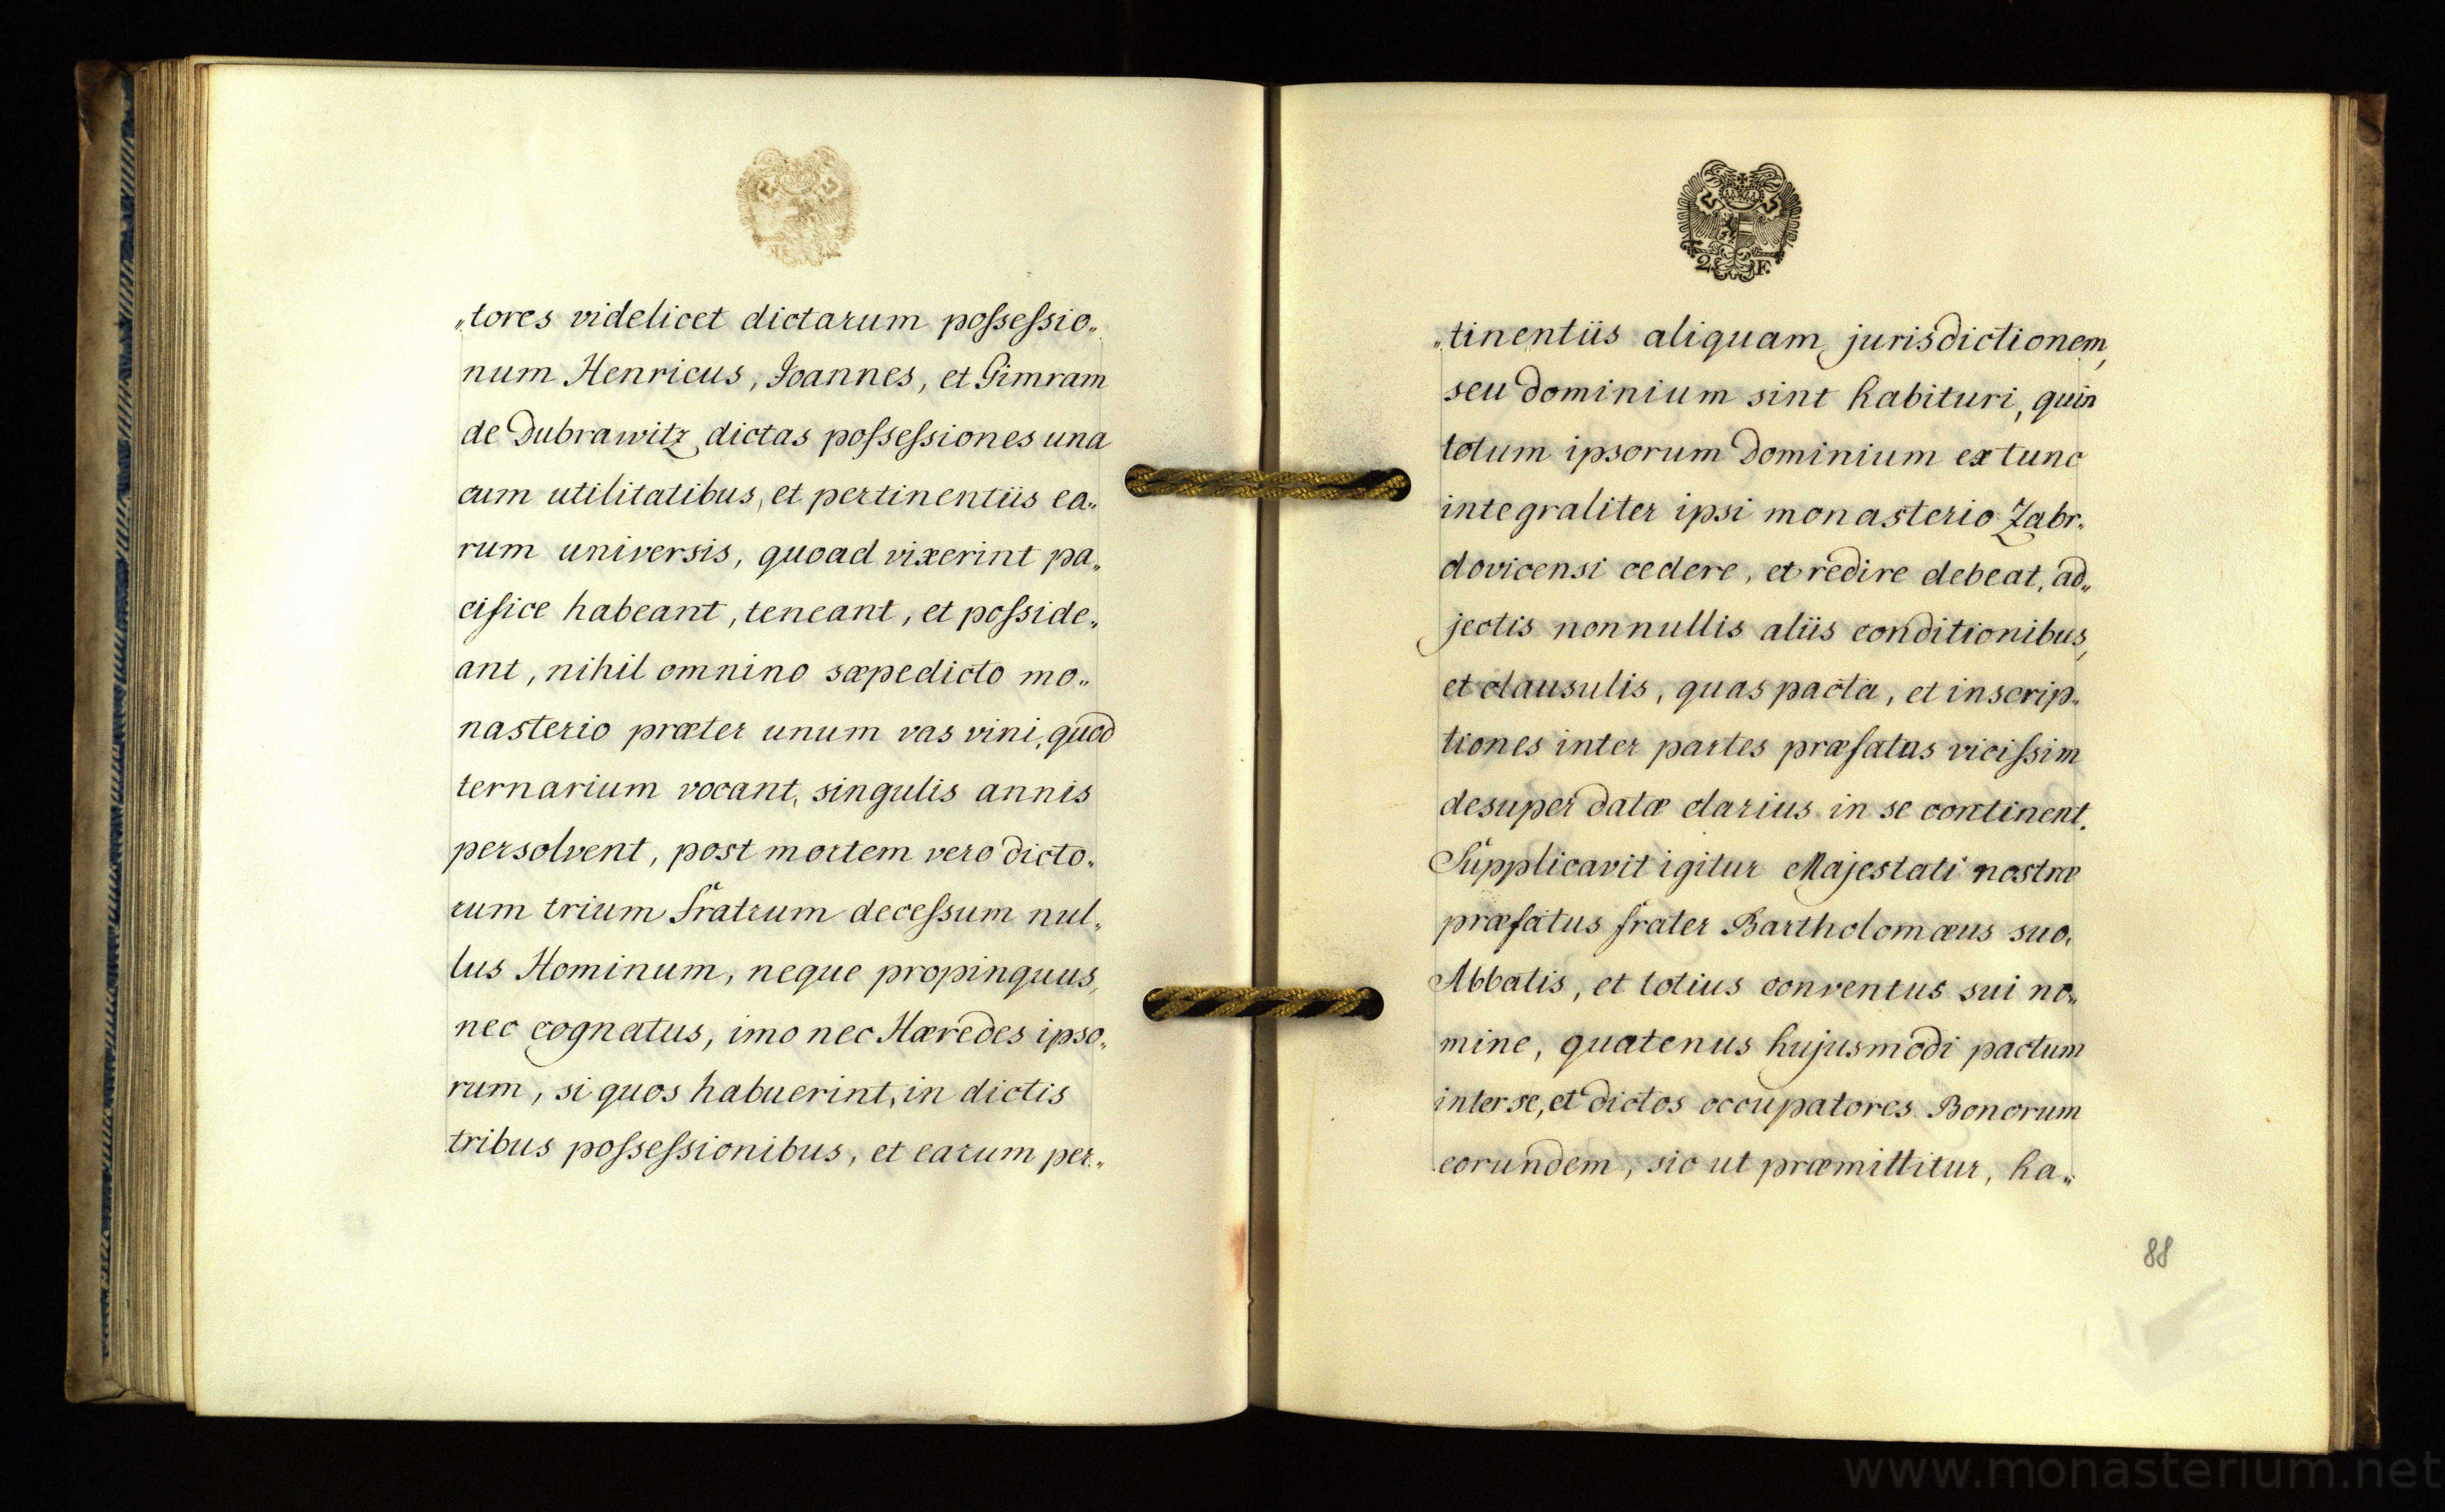 „tores videlicet dictarum poſseſsio„
num Henricus, Joannes, et Gimram
de Dubrawitz dictas poſseſsiones una
cum utilitatibus, et pertinentiis ea„
rum universis, quoad vixerint pa„
cifice habeant, teneant, et poſside„
ant, nihil omnino sæpedicto mo„
nasterio præter unum vas vini, quod
ternarium vocant, singulis annis
persolvent, post mortem vero dicto„
rum trium Fratrum deceſsum nul„
lus Hominum, neque propinquus,
nec cognatus, imo nec Hæredes ipso„
rum, si quos habuerint, in dictis
tribus poſseſsionibus, et earum per„
2 F.
„tinentiis aliquam jurisdictionem,
seu dominium sint habituri, quin
totum ipsorum dominium ex tunc
integraliter ipsi monasterio Zabr„
dovicensi cedere, et redire debeat, ad„
jectis nonnullis aliis conditionibus,
et clausulis, quas pacta, et inscrip„
tiones inter partes præfatas viciſsim
desuper datæ clarius in se continent.
Supplicavit igitur Majestati nostræ
præfatus frater Bartholomæus suo,
Abbatis, et totius conventus sui no„
mine, quatenus hujusmodi pactum
inter se, et dictos occupatores Bonorum
eorundem, sic ut præmittitur, ha„
88
www.monasterium.net